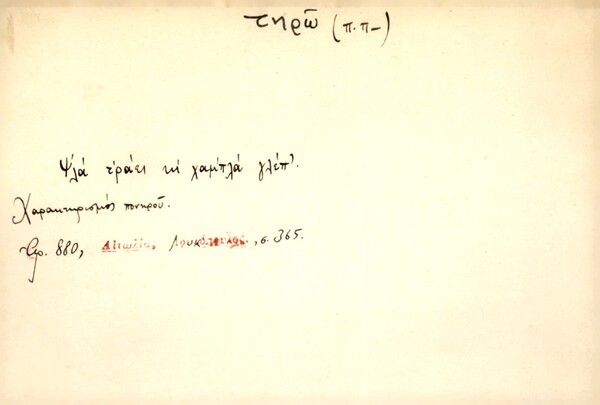 τηρῶ (π.π–)
Ψ'λά τ'ράει κι χαμπλά γλέπ'.
Χαρακτηρισμός πονηροῦ.
Ἀρ. 880, Αἰτωλία, Λουκόπουλος, σ. 365.